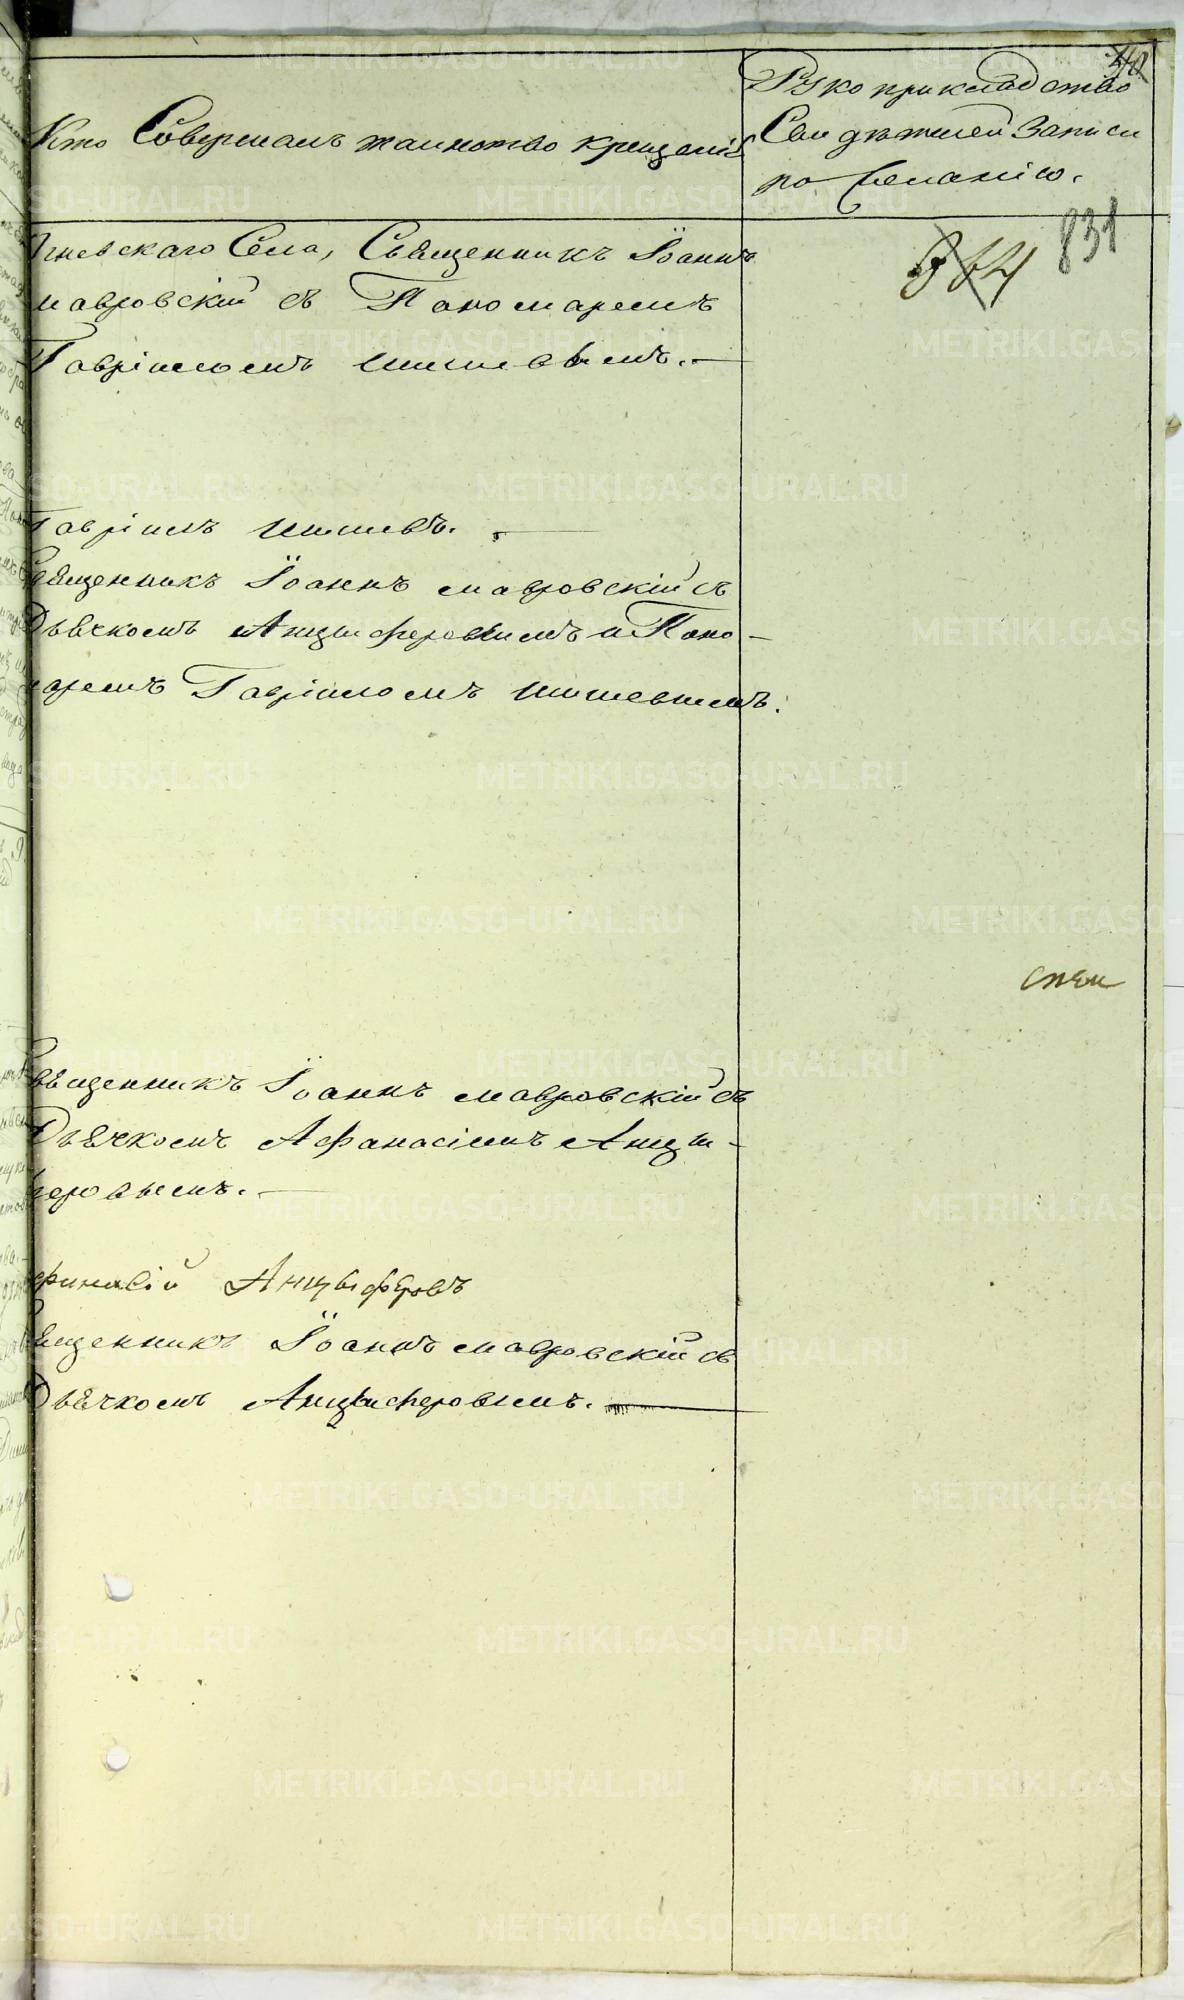 Кто Совершалъ таинство крещенія
Рукоприкладство
Свидѣтелей записи
по желанію.
831
364
Огневскаго Села, Священникъ Іоаннъ
мавровскій съ Пономаремъ
Гавріиломъ Шишевымъ.
Гавріилъ Шишевъ.
Священникъ Іоаннъ мавровскій съ
Дьячкомъ Анцыферовымъ и Поно-
маремъ Гавріиломъ Шишевымъ.
Священникъ Іоаннъ мавровскій съ
Дьячкомъ Афанасіемъ Анцы-
феровымъ.
Анцыферовъ
Священникъ Іоаннъ мавровскій съ
Дьячкомъ Анцыферовымъ.
METRIKI.GASO-URAL.RU